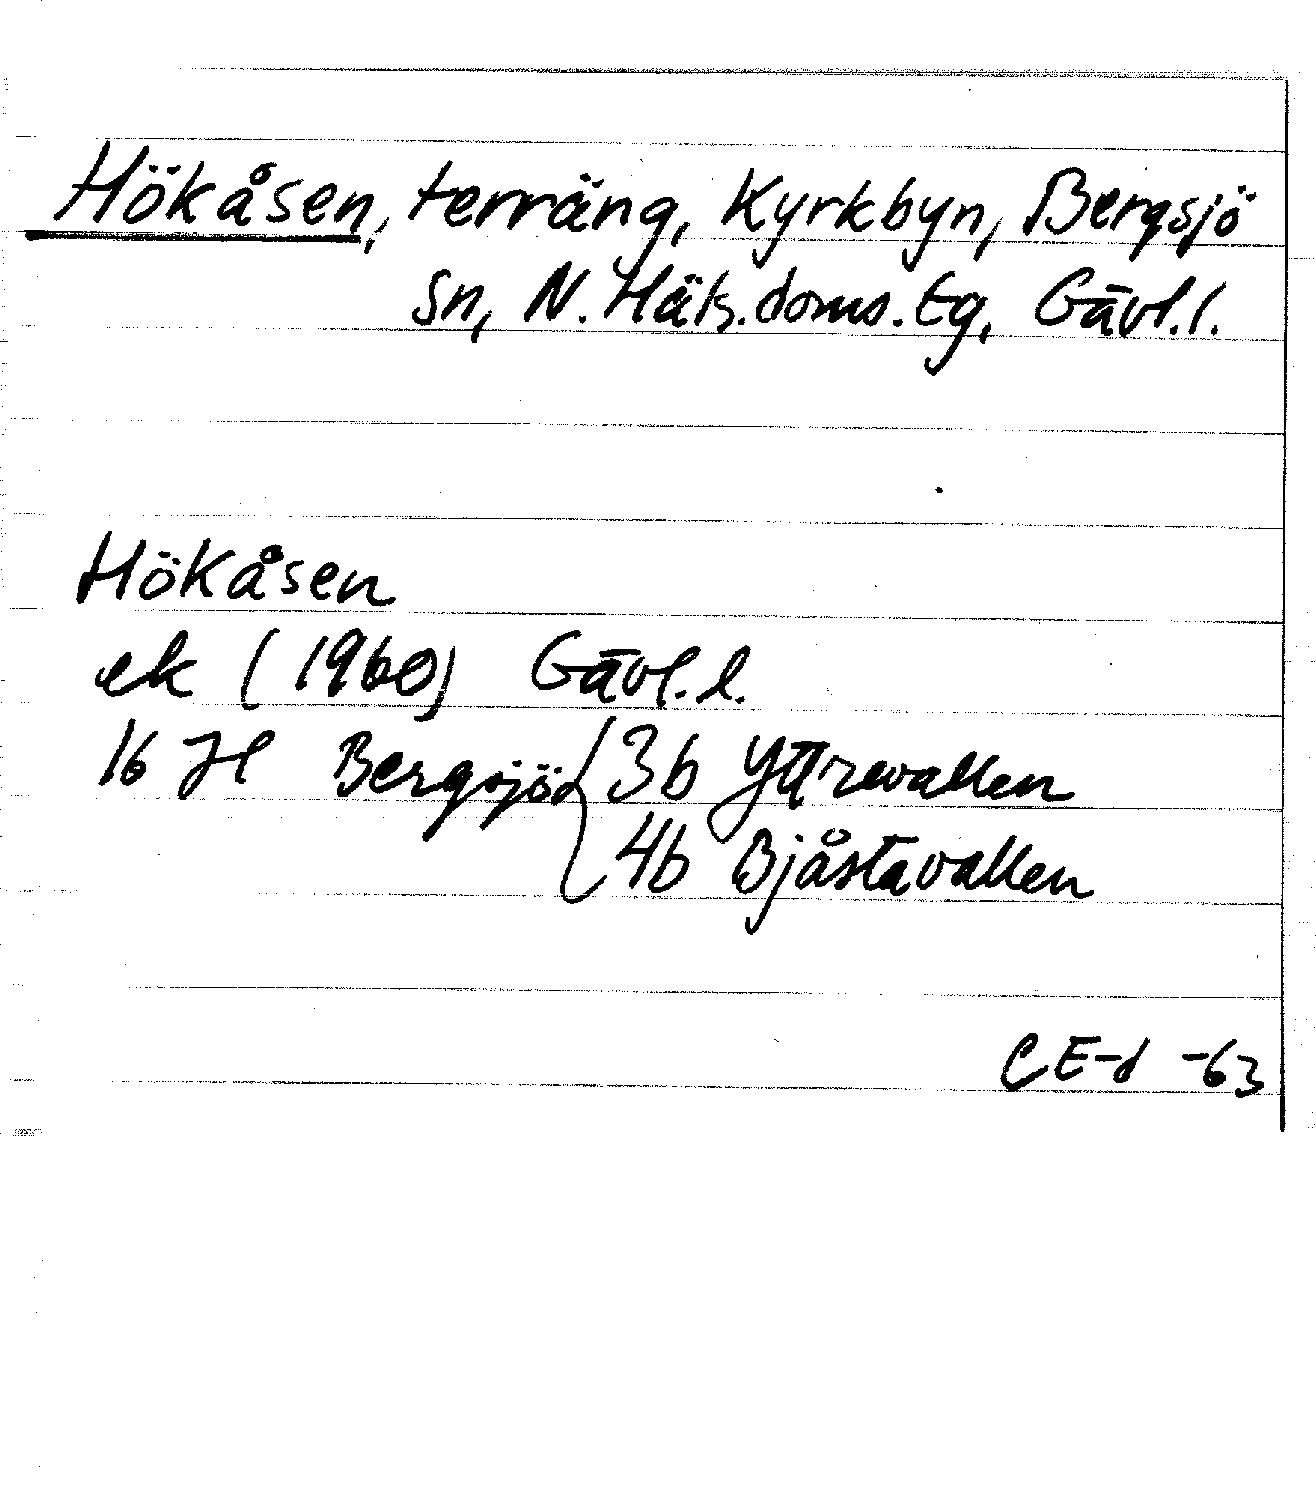 Hökåsen, terräng, Kyrkbyn, Bergsjö
sn, N. Häls. doms. tg, Gävl. l.
Hökåsen
ek (1960) Gävl. l.
16 H Bergsjö { 3b Yttrevallen
4b Bjåstavallen
CE-d -63